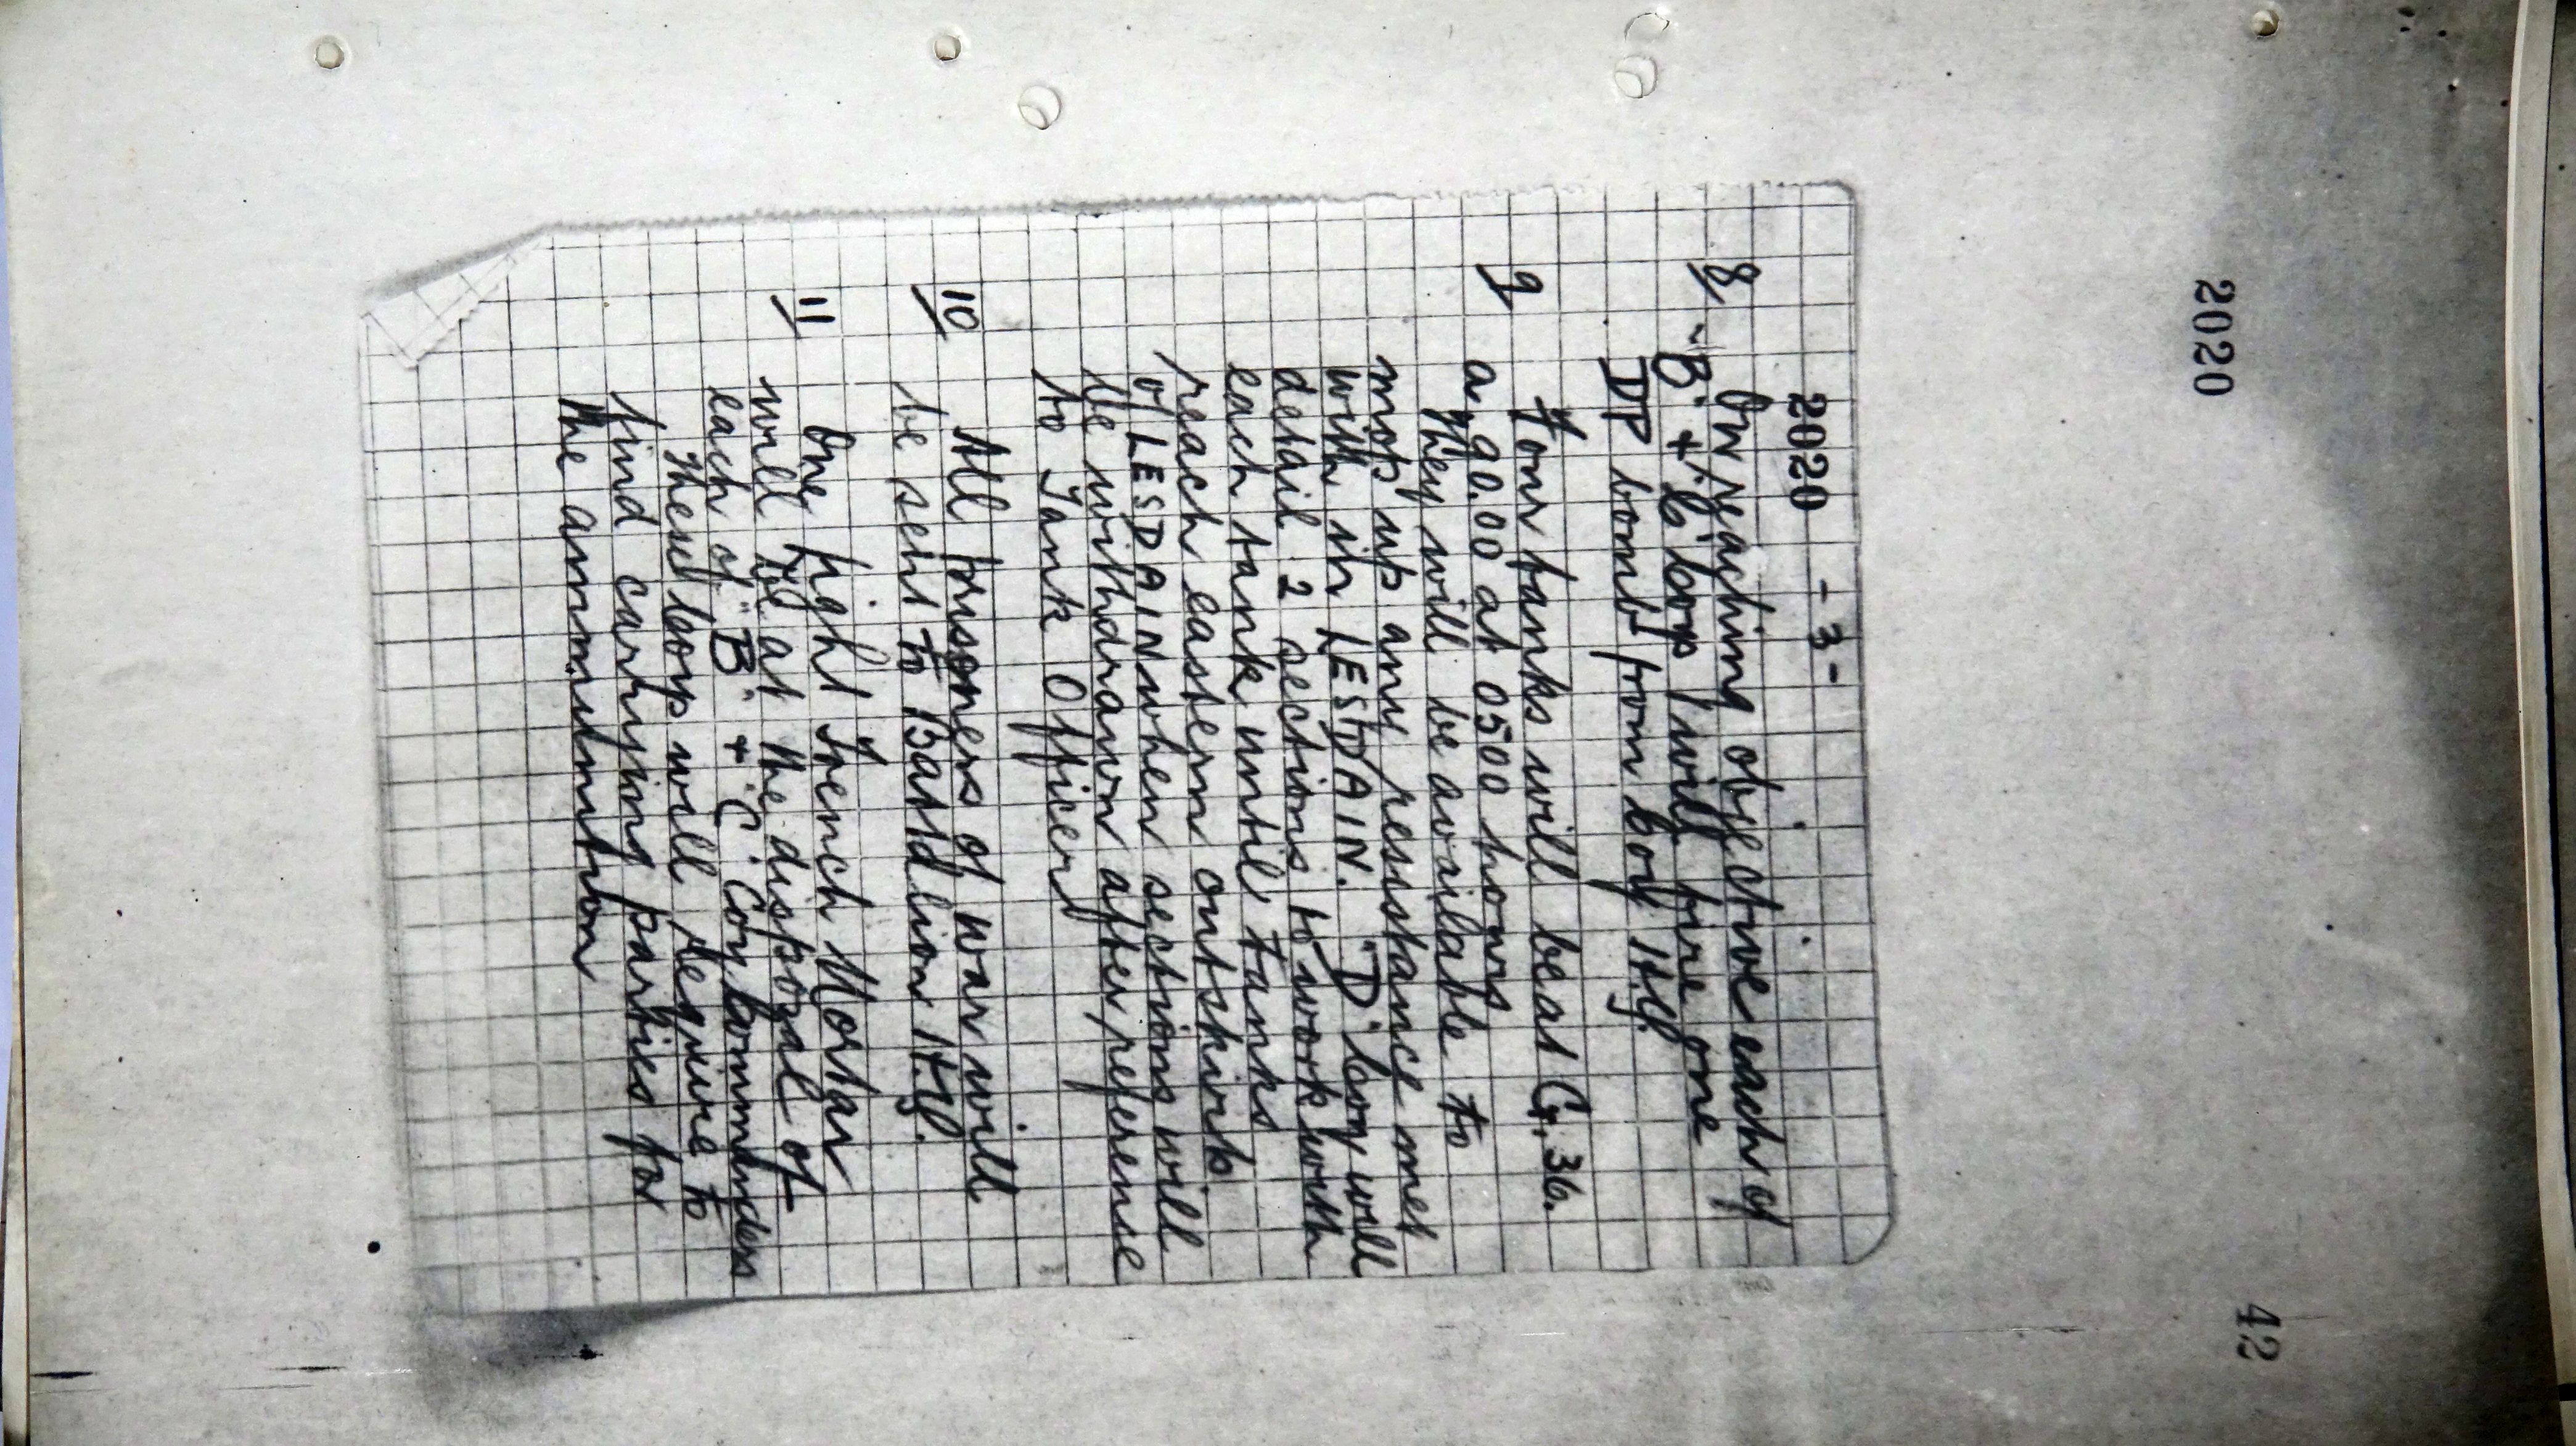 2020
42
2020 - 3 -
8 On reaching objective each of
"B" + "C" Coys will fire one
DP bomb from Coy H.Q.
9 Four tanks will be at G.36.
a.90.00 at 0500 hours
They will be available to
mop up any resistance met
with in LESDAIN. "D" Coy will
detail 2 sections to work with
each tank until tanks
reach eastern outskirts
of LESDAIN when sections will
be withdrawn after reference
to Tank Officer
10 All prisoners of war will
be sent to Battalion H.Q.
11 One Light Trench Mortar
will be at the disposal of
each of "B" + "C" Coy Commanders
These Coys will require to
find carrying parties for
the ammunition